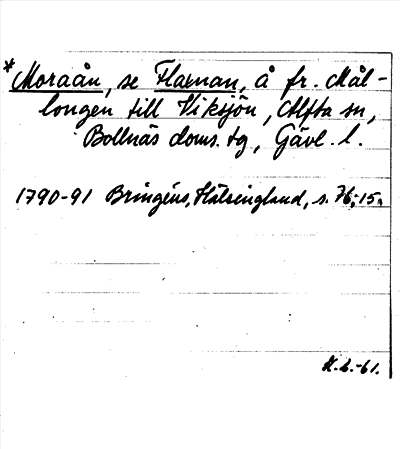 *Moraån, se Flaman, å fr. Mål-
longen till Viksjön, Alfta sn,
Bollnäs doms. tg, Gävl. l.
1790-91 Bringéus, Hälsingland, s. 76, 15.
-61.